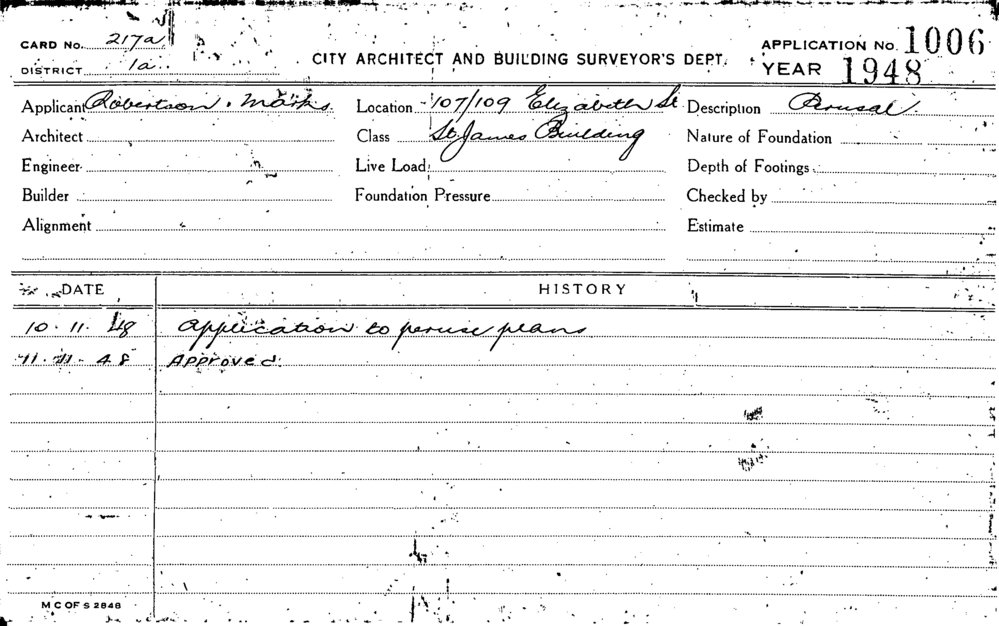 CARD No. 217a
DISTRICT 1a
CITY ARCHITECT AND BUILDING SURVEYOR'S DEPT.
APPLICATION No. 1006
YEAR 1948
Applicant Robertson & Marks Location 107/109 Elizabeth St Description Perusal
Architect Class St James Building Nature of Foundation
Engineer Live Load Depth of Footings
Builder Foundation Pressure Checked by
Alignment Estimate
DATE HISTORY
10. 11. 48 application to peruse plans
11. 11. 48 Approved.
M C OF S 2848